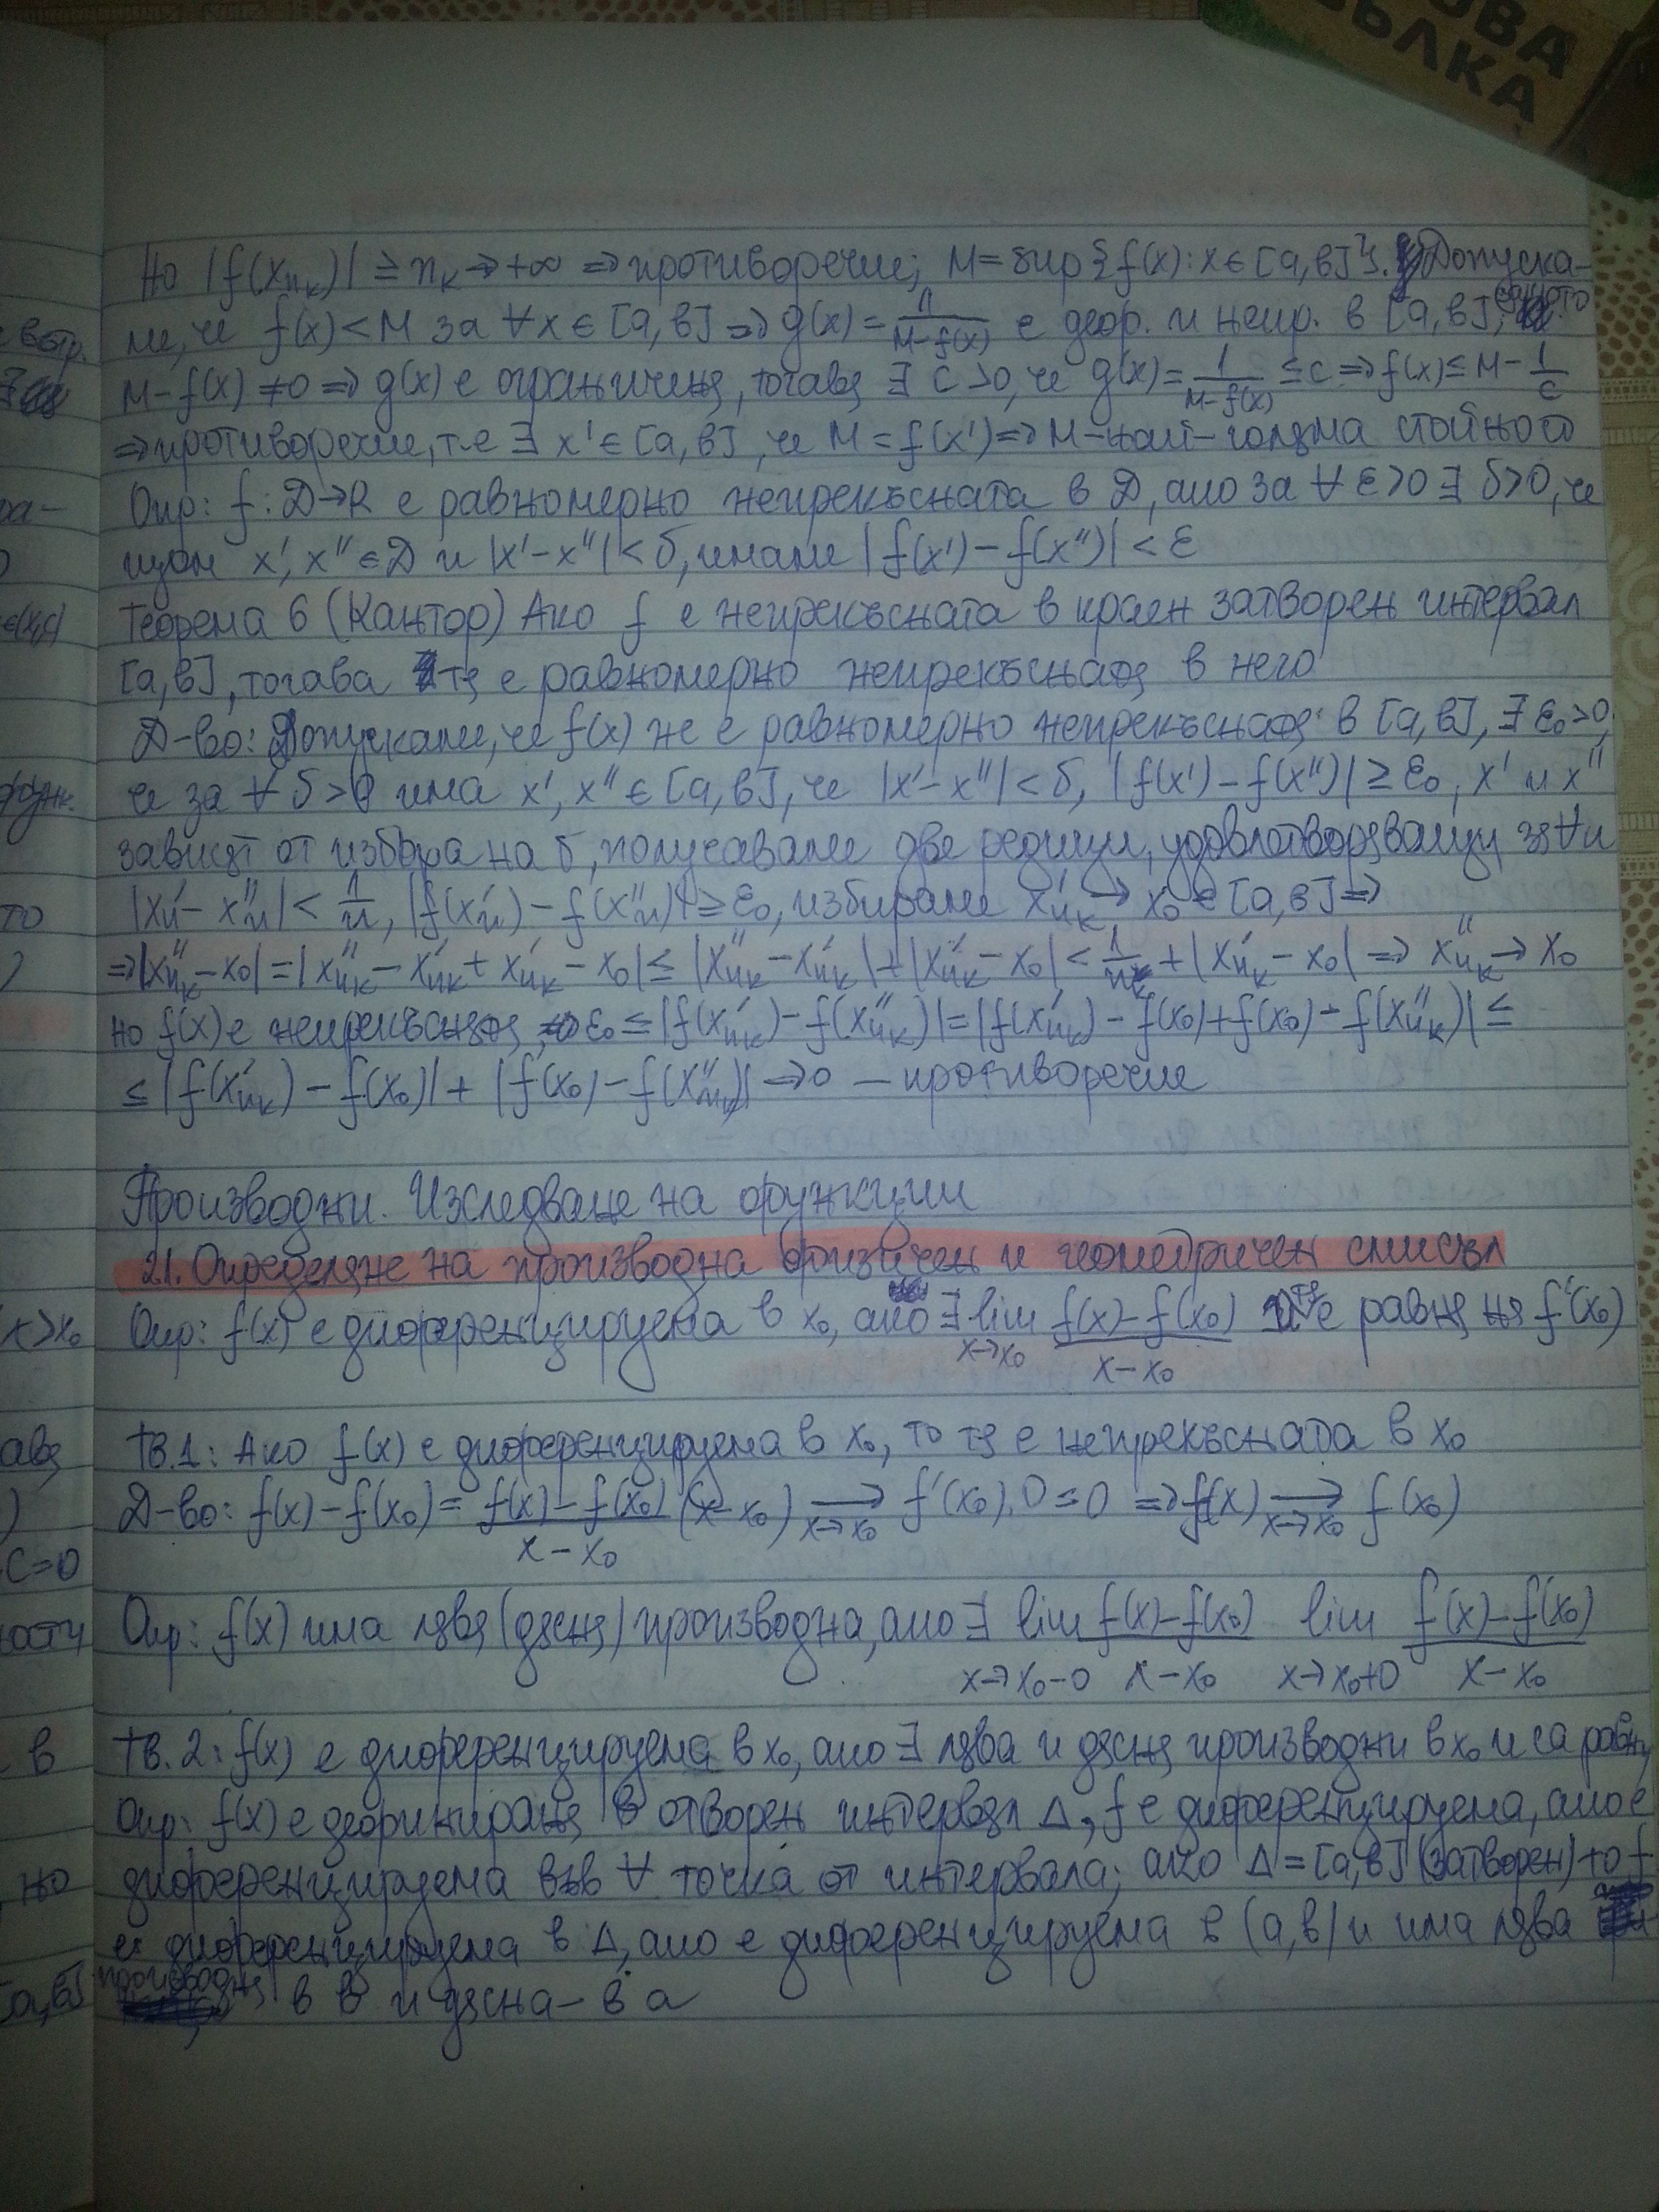 ОВА
ЪЛКА
Но |f(x_{n_k})| ≥ n_k → +∞ => противоречие; M = sup{f(x): x ∈ [a,в]}. Допуска-
ме, че f(x) < M за ∀ x ∈ [a,в] => g(x) = 1/(M-f(x)) е деф. и непр. в [a,в], защото
M-f(x) ≠ 0 => g(x) е ограничена, тогава ∃ c>0, че g(x) = 1/(M-f(x)) ≤ c => f(x) ≤ M - 1/c
=> противоречие, т.е ∃ x' ∈ [a,в], че M = f(x') => M - най-голяма стойност
Опр: f: D→R е равномерно непрекъсната в D, ако за ∀ ε>0 ∃ δ>0, че
щом x', x'' ∈ D и |x'-x''| < δ, имаме |f(x') - f(x'')| < ε
Теорема 6 (Кантор) Ако f е непрекъсната в краен затворен интервал
[a,в], тогава тя е равномерно непрекъсната в него
Д-во: Допускаме, че f(x) не е равномерно непрекъсната в [a,в], ∃ ε₀>0,
че за ∀ δ>0 има x', x'' ∈ [a,в], че |x'-x''| < δ, |f(x') - f(x'')| ≥ ε₀, x' и x''
зависят от избора на δ, получаваме две редици, удовлетворяващи за ∀ n
|x'_n - x''_n| < 1/n, |f(x'_n) - f(x''_n)| ≥ ε₀, избираме x'_{n_k} → x₀ ∈ [a,в] =>
=> |x''_{n_k} - x₀| = |x''_{n_k} - x'_{n_k} + x'_{n_k} - x₀| ≤ |x''_{n_k} - x'_{n_k}| + |x'_{n_k} - x₀| < 1/n_k + |x'_{n_k} - x₀| => x''_{n_k} → x₀
но f(x) е непрекъсната => ε₀ ≤ |f(x'_{n_k}) - f(x''_{n_k})| = |f(x'_{n_k}) - f(x₀) + f(x₀) - f(x''_{n_k})| ≤
≤ |f(x'_{n_k}) - f(x₀)| + |f(x₀) - f(x''_{n_k})| → 0 - противоречие
Производни. Изследване на функции
21. Определяне на производна физичен и геометричен смисъл
Опр: f(x) е диференцируема в x₀, ако ∃ lim_{x→x₀} (f(x)-f(x₀))/(x-x₀) и тя е равна на f'(x₀)
Тв.1: Ако f(x) е диференцируема в x₀, то тя е непрекъсната в x₀
Д-во: f(x) - f(x₀) = (f(x)-f(x₀))/(x-x₀) (x-x₀) →_{x→x₀} f'(x₀).0 = 0 => f(x) →_{x→x₀} f(x₀)
Опр: f(x) има лява (дясна) производна, ако ∃ lim_{x→x₀-0} (f(x)-f(x₀))/(x-x₀) lim_{x→x₀+0} (f(x)-f(x₀))/(x-x₀)
Тв.2: f(x) е диференцируема в x₀, ако ∃ лява и дясна производни в x₀ и са равни
Опр: f(x) е дефинирана в отворен интервал Δ, f е диференцируема, ако е
диференцируема във ∀ точка от интервала; ако Δ = [a,в] (затворен) то f
е диференцируема в Δ, ако е диференцируема в (a,в) и има лява
производна в в и дясна - в a